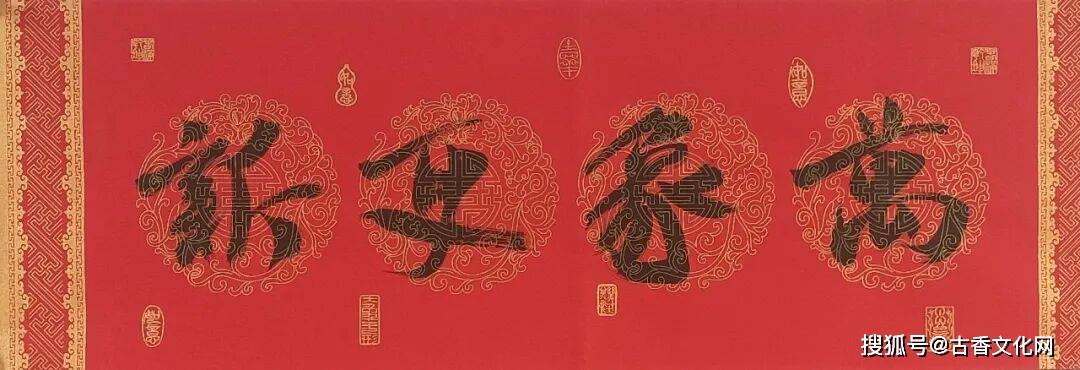 萬象更新
搜狐号@古香文化网